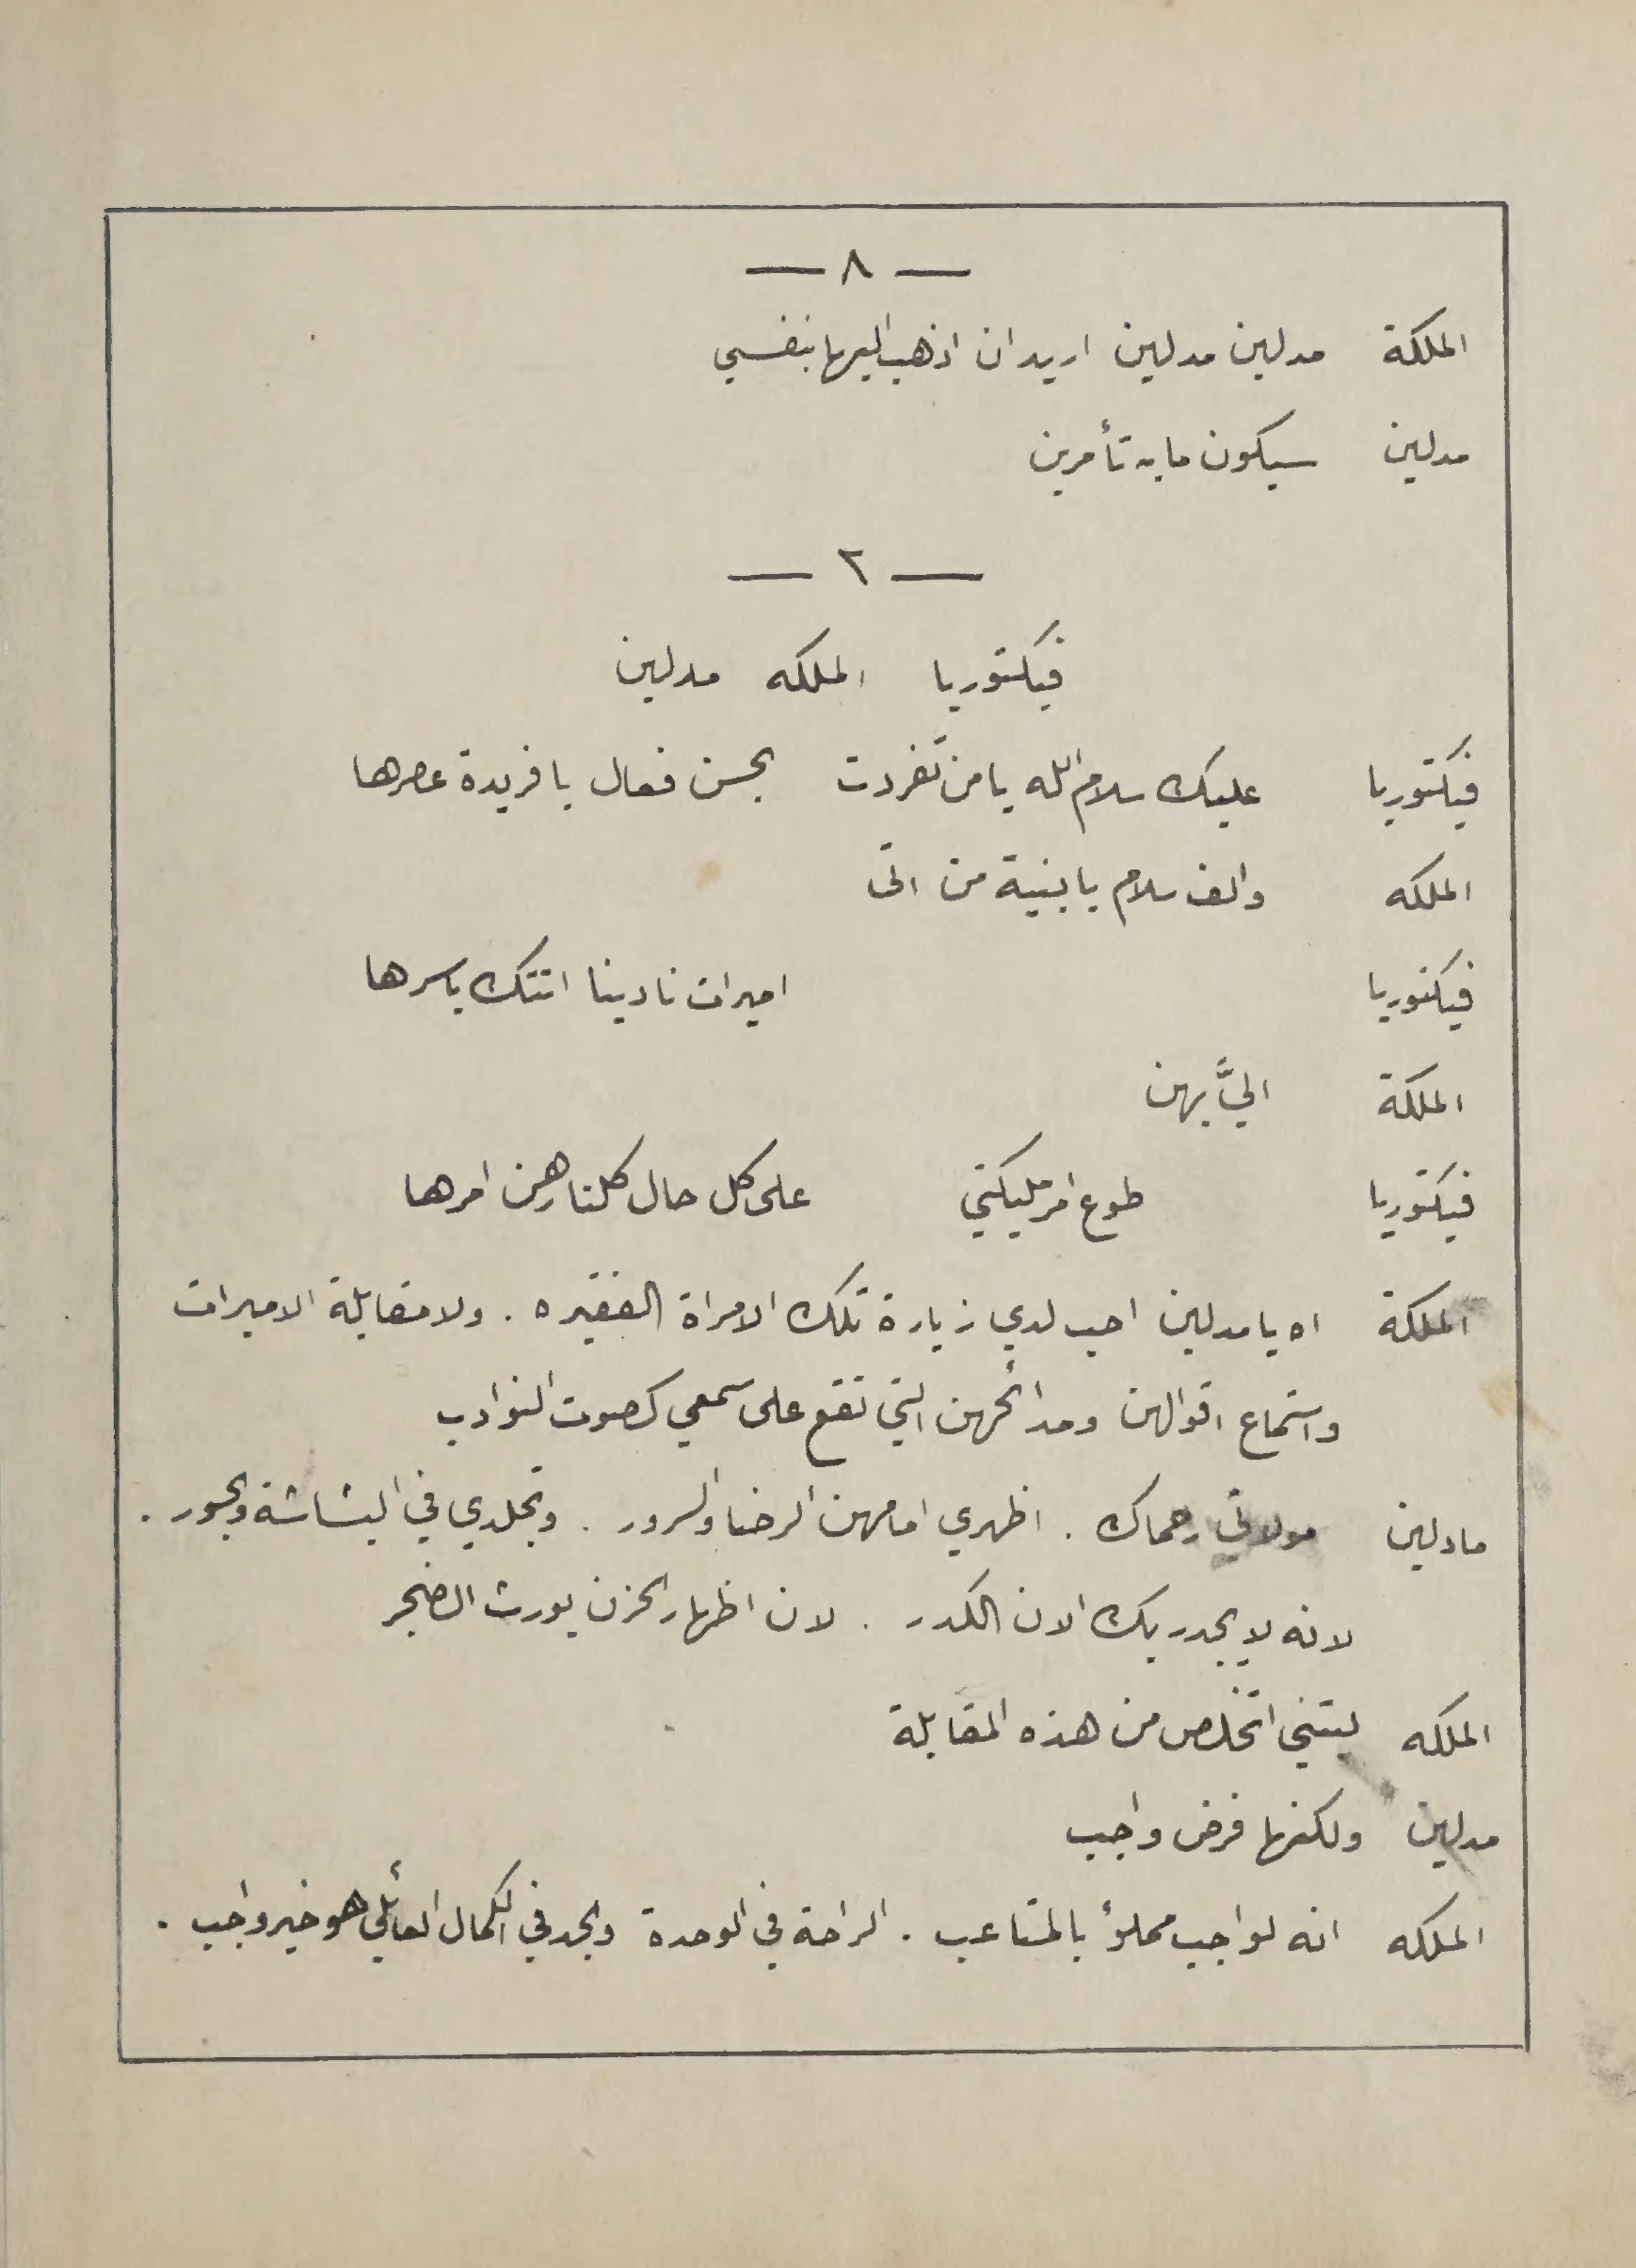 — ٨ —
الملكة مدلين مدلين اريد ان اذهب اليها بنفسي
مدلين سيكون ما به تأمرين
— ٢ —
فيكتوريا الملكه مدلين
فيكتوريا عليك سلام الله يا من تفردت بحسن فعال يا فريدة عصرها
الملكه والف سلام يا بنية من اتى
فيكتوريا اميرات نادينا اتتك باسرها
الملكة اليَّ بهن
فيكتوريا طوع امر مليكتي على كل حال كلنا رهن امرها
الملكة اه يا مدلين احب لدي زيارة تلك الامراة الفقيره . ولا مقابلة الاميرات
واستماع اقوالهن ومدائحهن التي تقع على سمعي كصوت النوادب
مادلين مولاتي رحماك . اظهري امامهن الرضا والسرور . وتجلدي في البشاشة والحبور .
لانه لا يجدر بك الان الكدر . لان اظهار الحزن يورث الضجر
الملكه ليتني اتخلص من هذه المقابلة
مدلين ولكنها فرض واجب
الملكه انه لواجب مملؤ بالمتاعب . الراحة في الوحدة والجد في الكمال العائلي هو خير واجب .